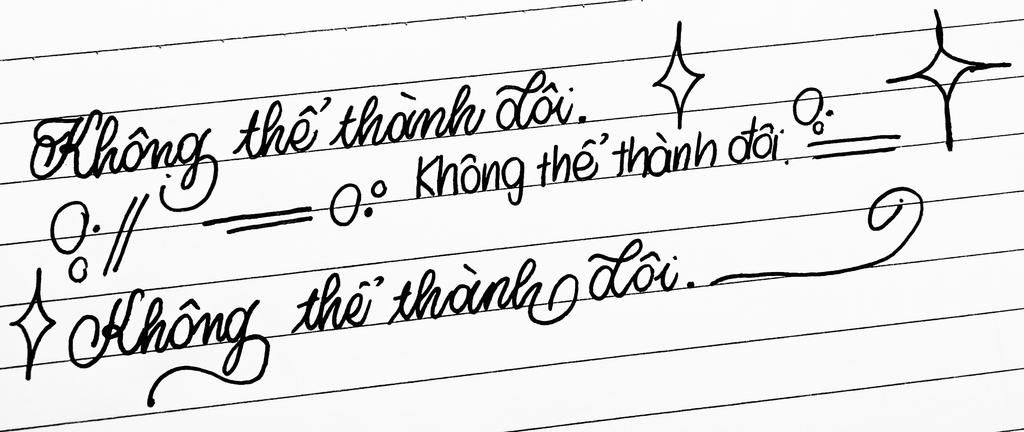 Không thể thành đôi.
Không thể thành đôi.
Không thể thành đôi.